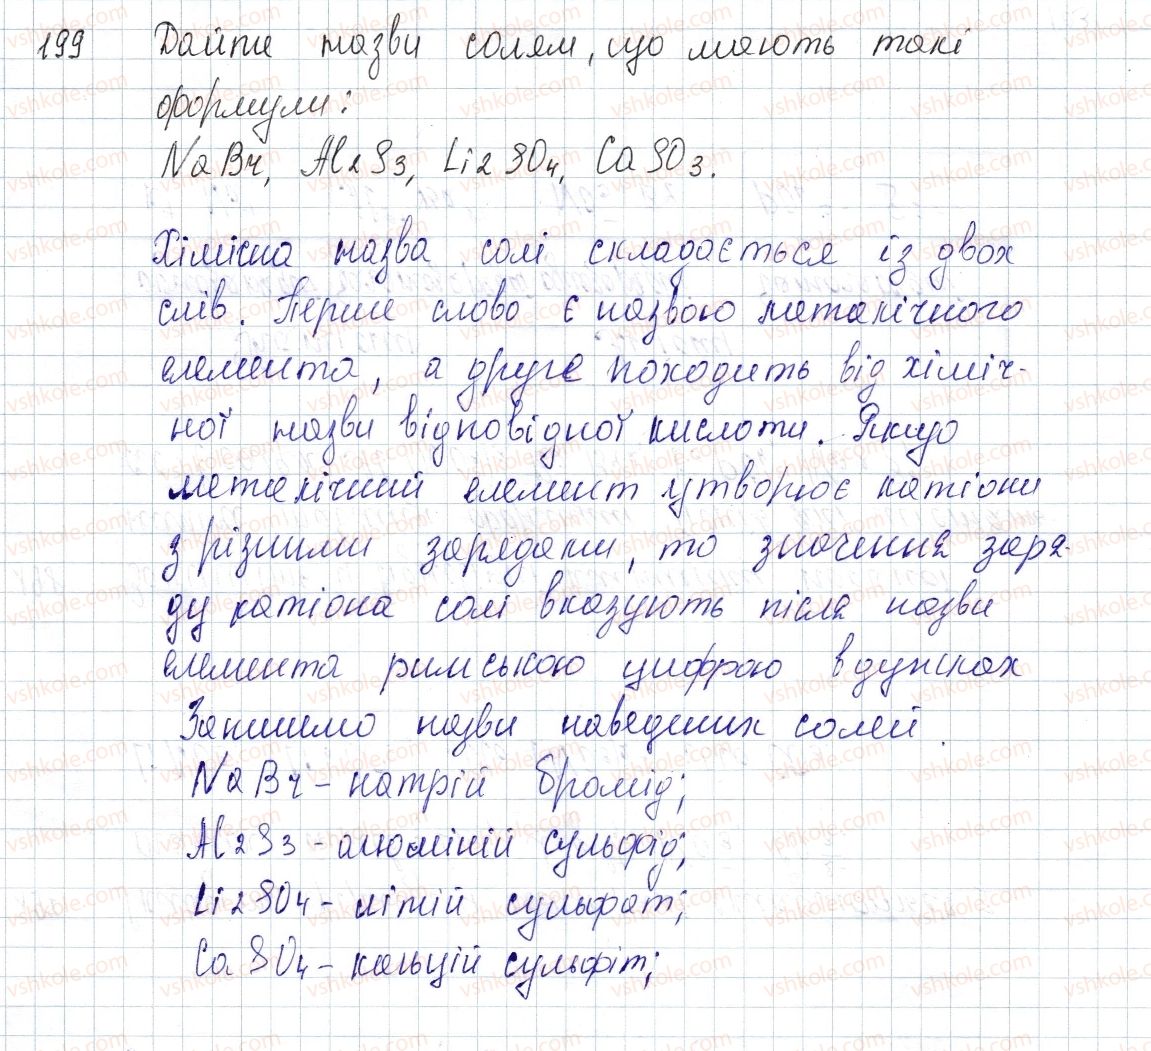 199 Дайте назви солям, що мають такі
формули:
NaBr, Al2S3, Li2SO4, CaSO3.
Хімічна назва солі складається із двох
слів. Перше слово є назвою металічного
елемента, а друге походить від хіміч-
ної назви відповідної кислоти. Якщо
металічний елемент утворює катіони
з різними зарядами, то значення заря-
ду катіона солі вказують після назви
елемента римською цифрою в дужках
Запишимо назви наведених солей.
NaBr - натрій бромід;
Al2S3 - алюміній сульфід;
Li2SO4 - літій сульфат;
CaSO4 - кальцій сульфіт;